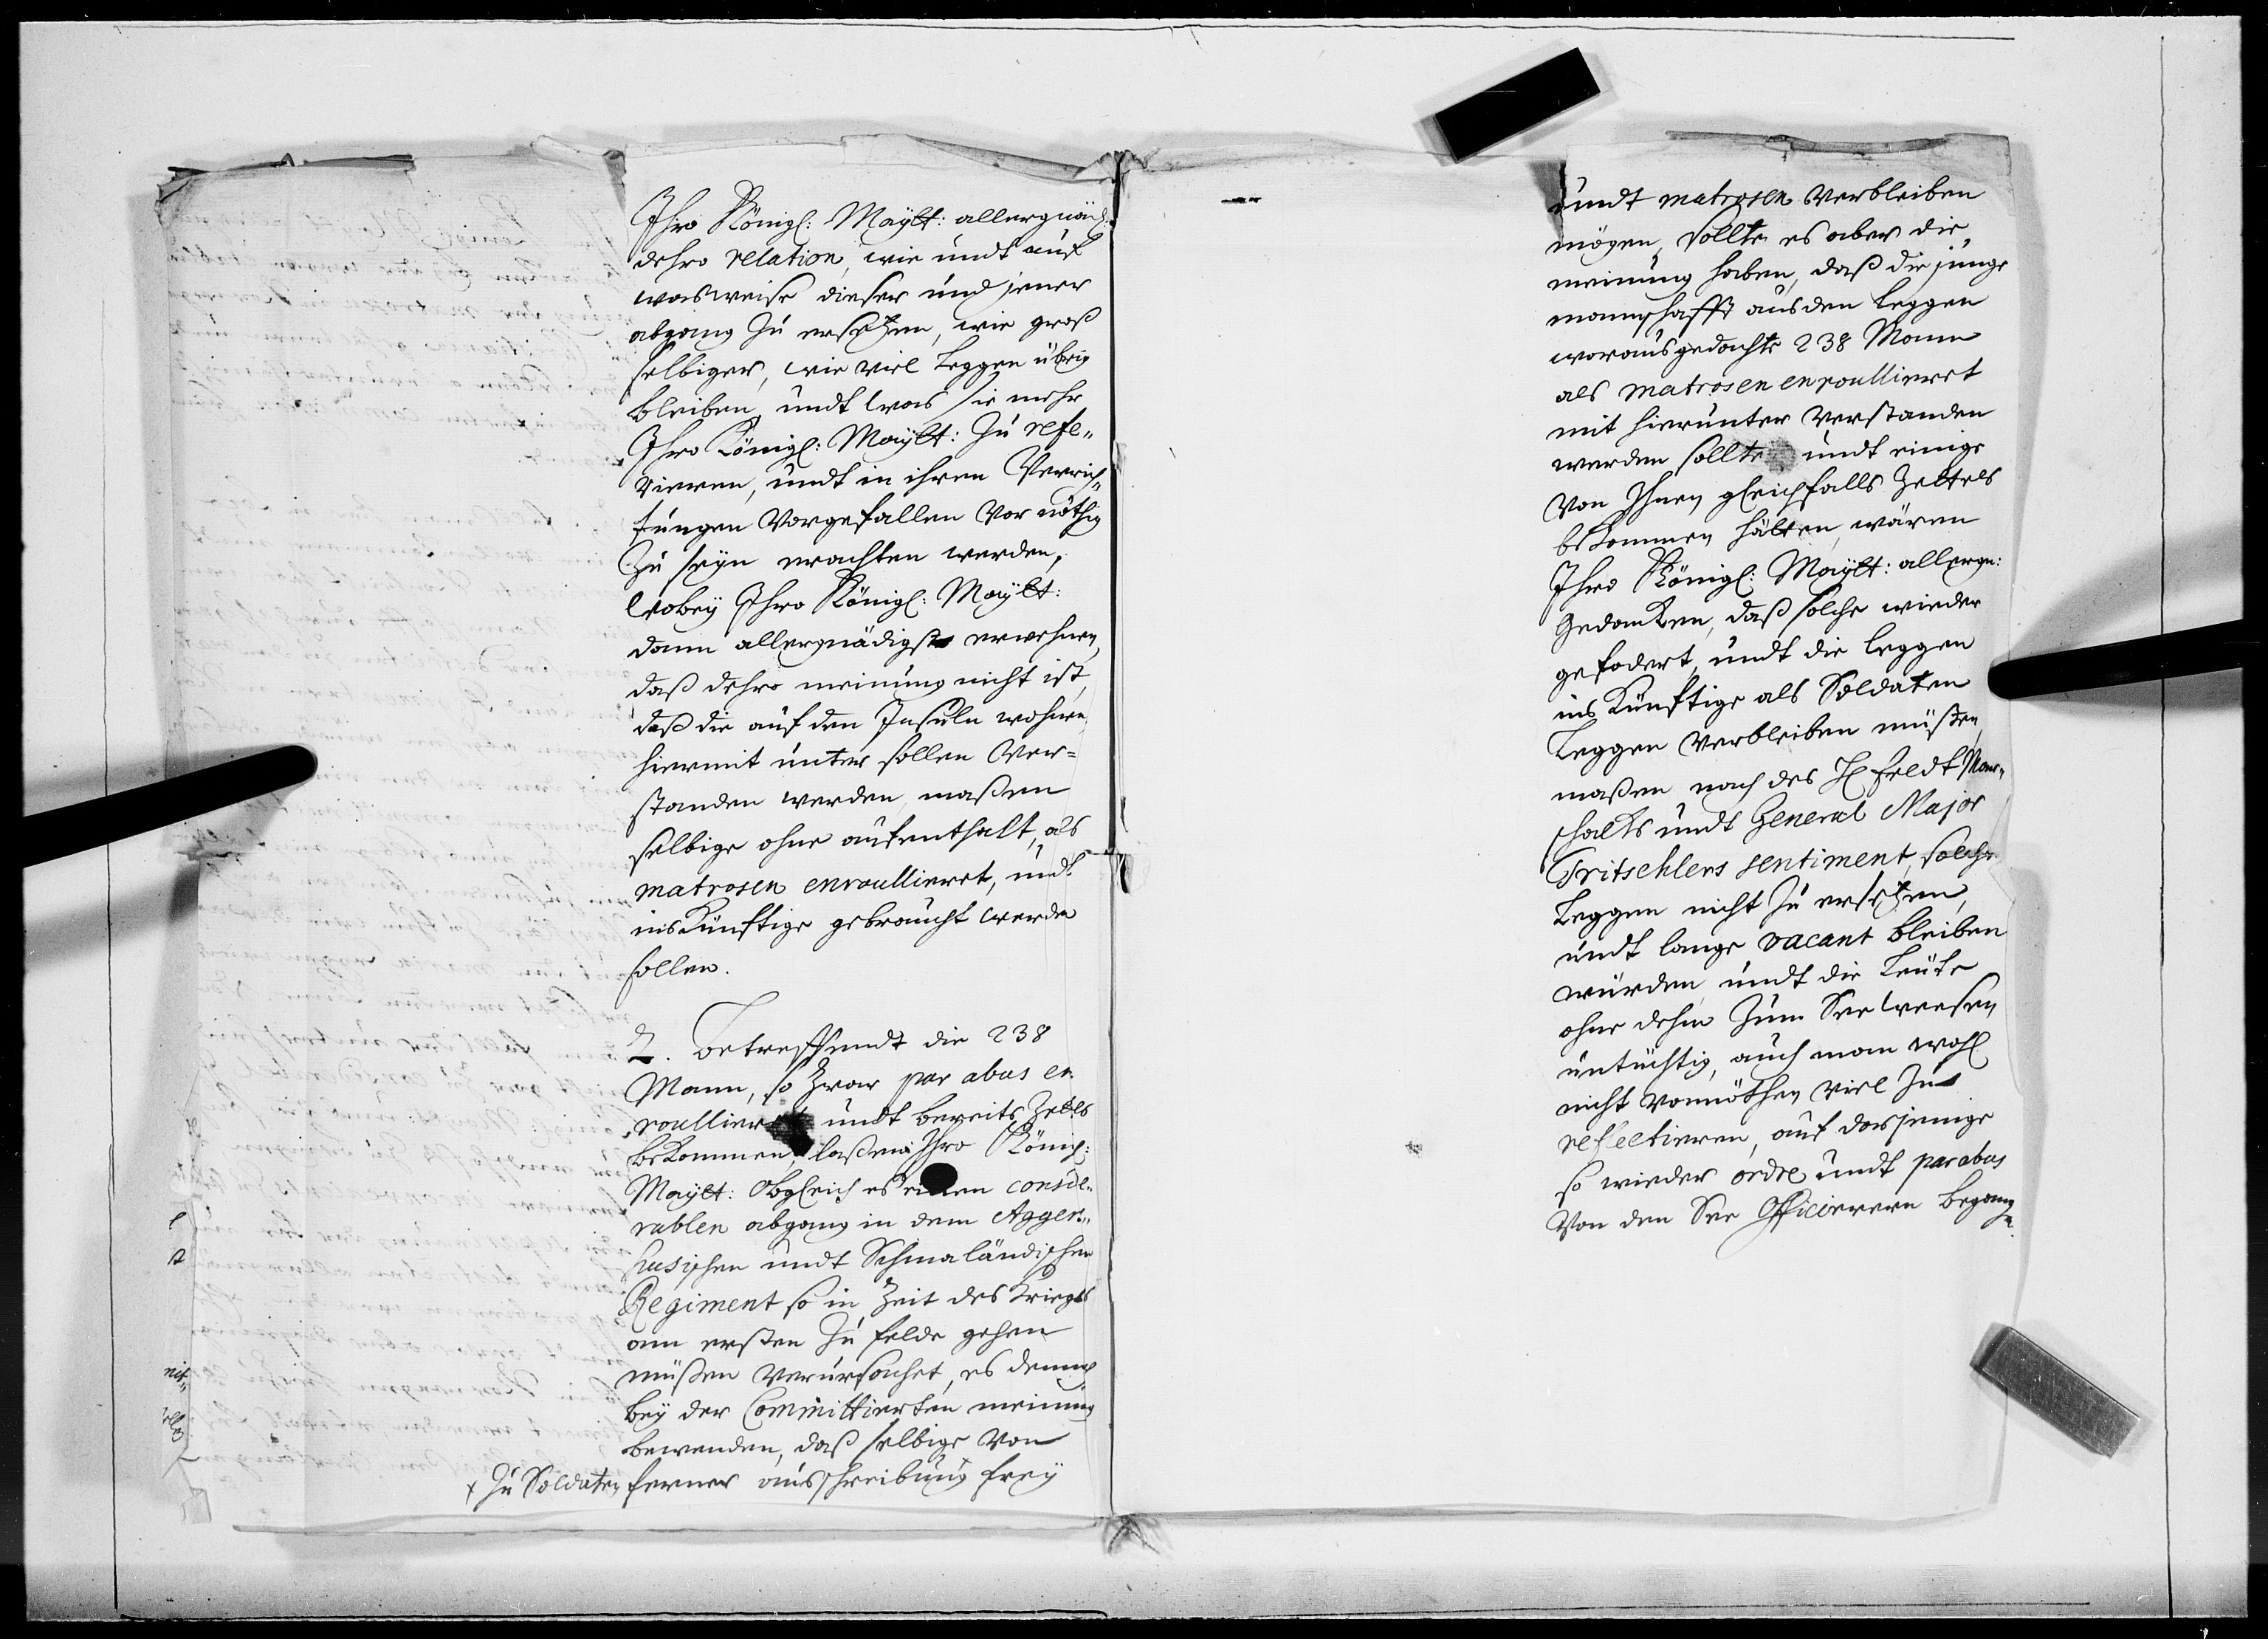 Ihro Königl: Maytt: allergnäd:
dehro relation, wie undt auf
was weise dieser und jener
abgang zu ersetzen, wie groß
selbiger, wie viel Leggen übrig
bleiben, undt was sie mehr
Ihro Königl: Maytt: zu refe„
rieren, undt in ihren Verrich„
tungen vorgefallen vor nöthig
zu seyn erachten werden,
Wobey Ihro Königl: Maytt:
dann allergnädigst erwehnen,
daß dehro meinung nicht ist,
daß die auf den Insuln wohnen
hiermit unter sollen ver=
standen werden, maßen
selbige ohne aufenthalt, als
matrosen enroullieret, undt
ins Künftige gebraucht werden
sollen.
2. Betreffendt die 238
Mann, so zwar par abus en
roullieret undt bereits Zettls
bekommen, laßen Ihro König:
Maytt: obgleich es einen conside„
rablen abgang in dem Agger„
husischen undt Schmaländischen
Regiment so in Zeit des Krieges
am ersten zu felde gehen
müßen verursachet, es dennoch
bey der Committierten meinung
bewenden, daß selbige von
x zu Soldaten ferner ausschreibung x frey
undt matrosen verbleiben
mögen, sollte es aber die
meinung haben, daß die junge
mannschafft aus den Leggen
woraus gedachte 238 Mann
als matrosen enroullieret
mit hierunter verstanden
werden sollte undt einige
von Ihnen gleichfalls Zettels
bekommen hätten, wären
Ihro Königl: Maytt: allergn:
Gedancken, daß solche wieder
gefodert, undt die Leggen
ins Künftige als Soldaten
Leggen verbleiben müßen,
maßen nach des H Feldt Mar„
schalks undt General Major
Tritschlers sentiment, solche
Leggen nicht zu ersetzen,
undt lange vacant bleiben
würden, undt die Leute
ohne dehm zum See weesen
untüchtig, auch man wohl
nicht vonnöthen viel zu
reflectieren, auf dasjenige
so wieder ordre undt par abus
von den See Officierern begang
n.